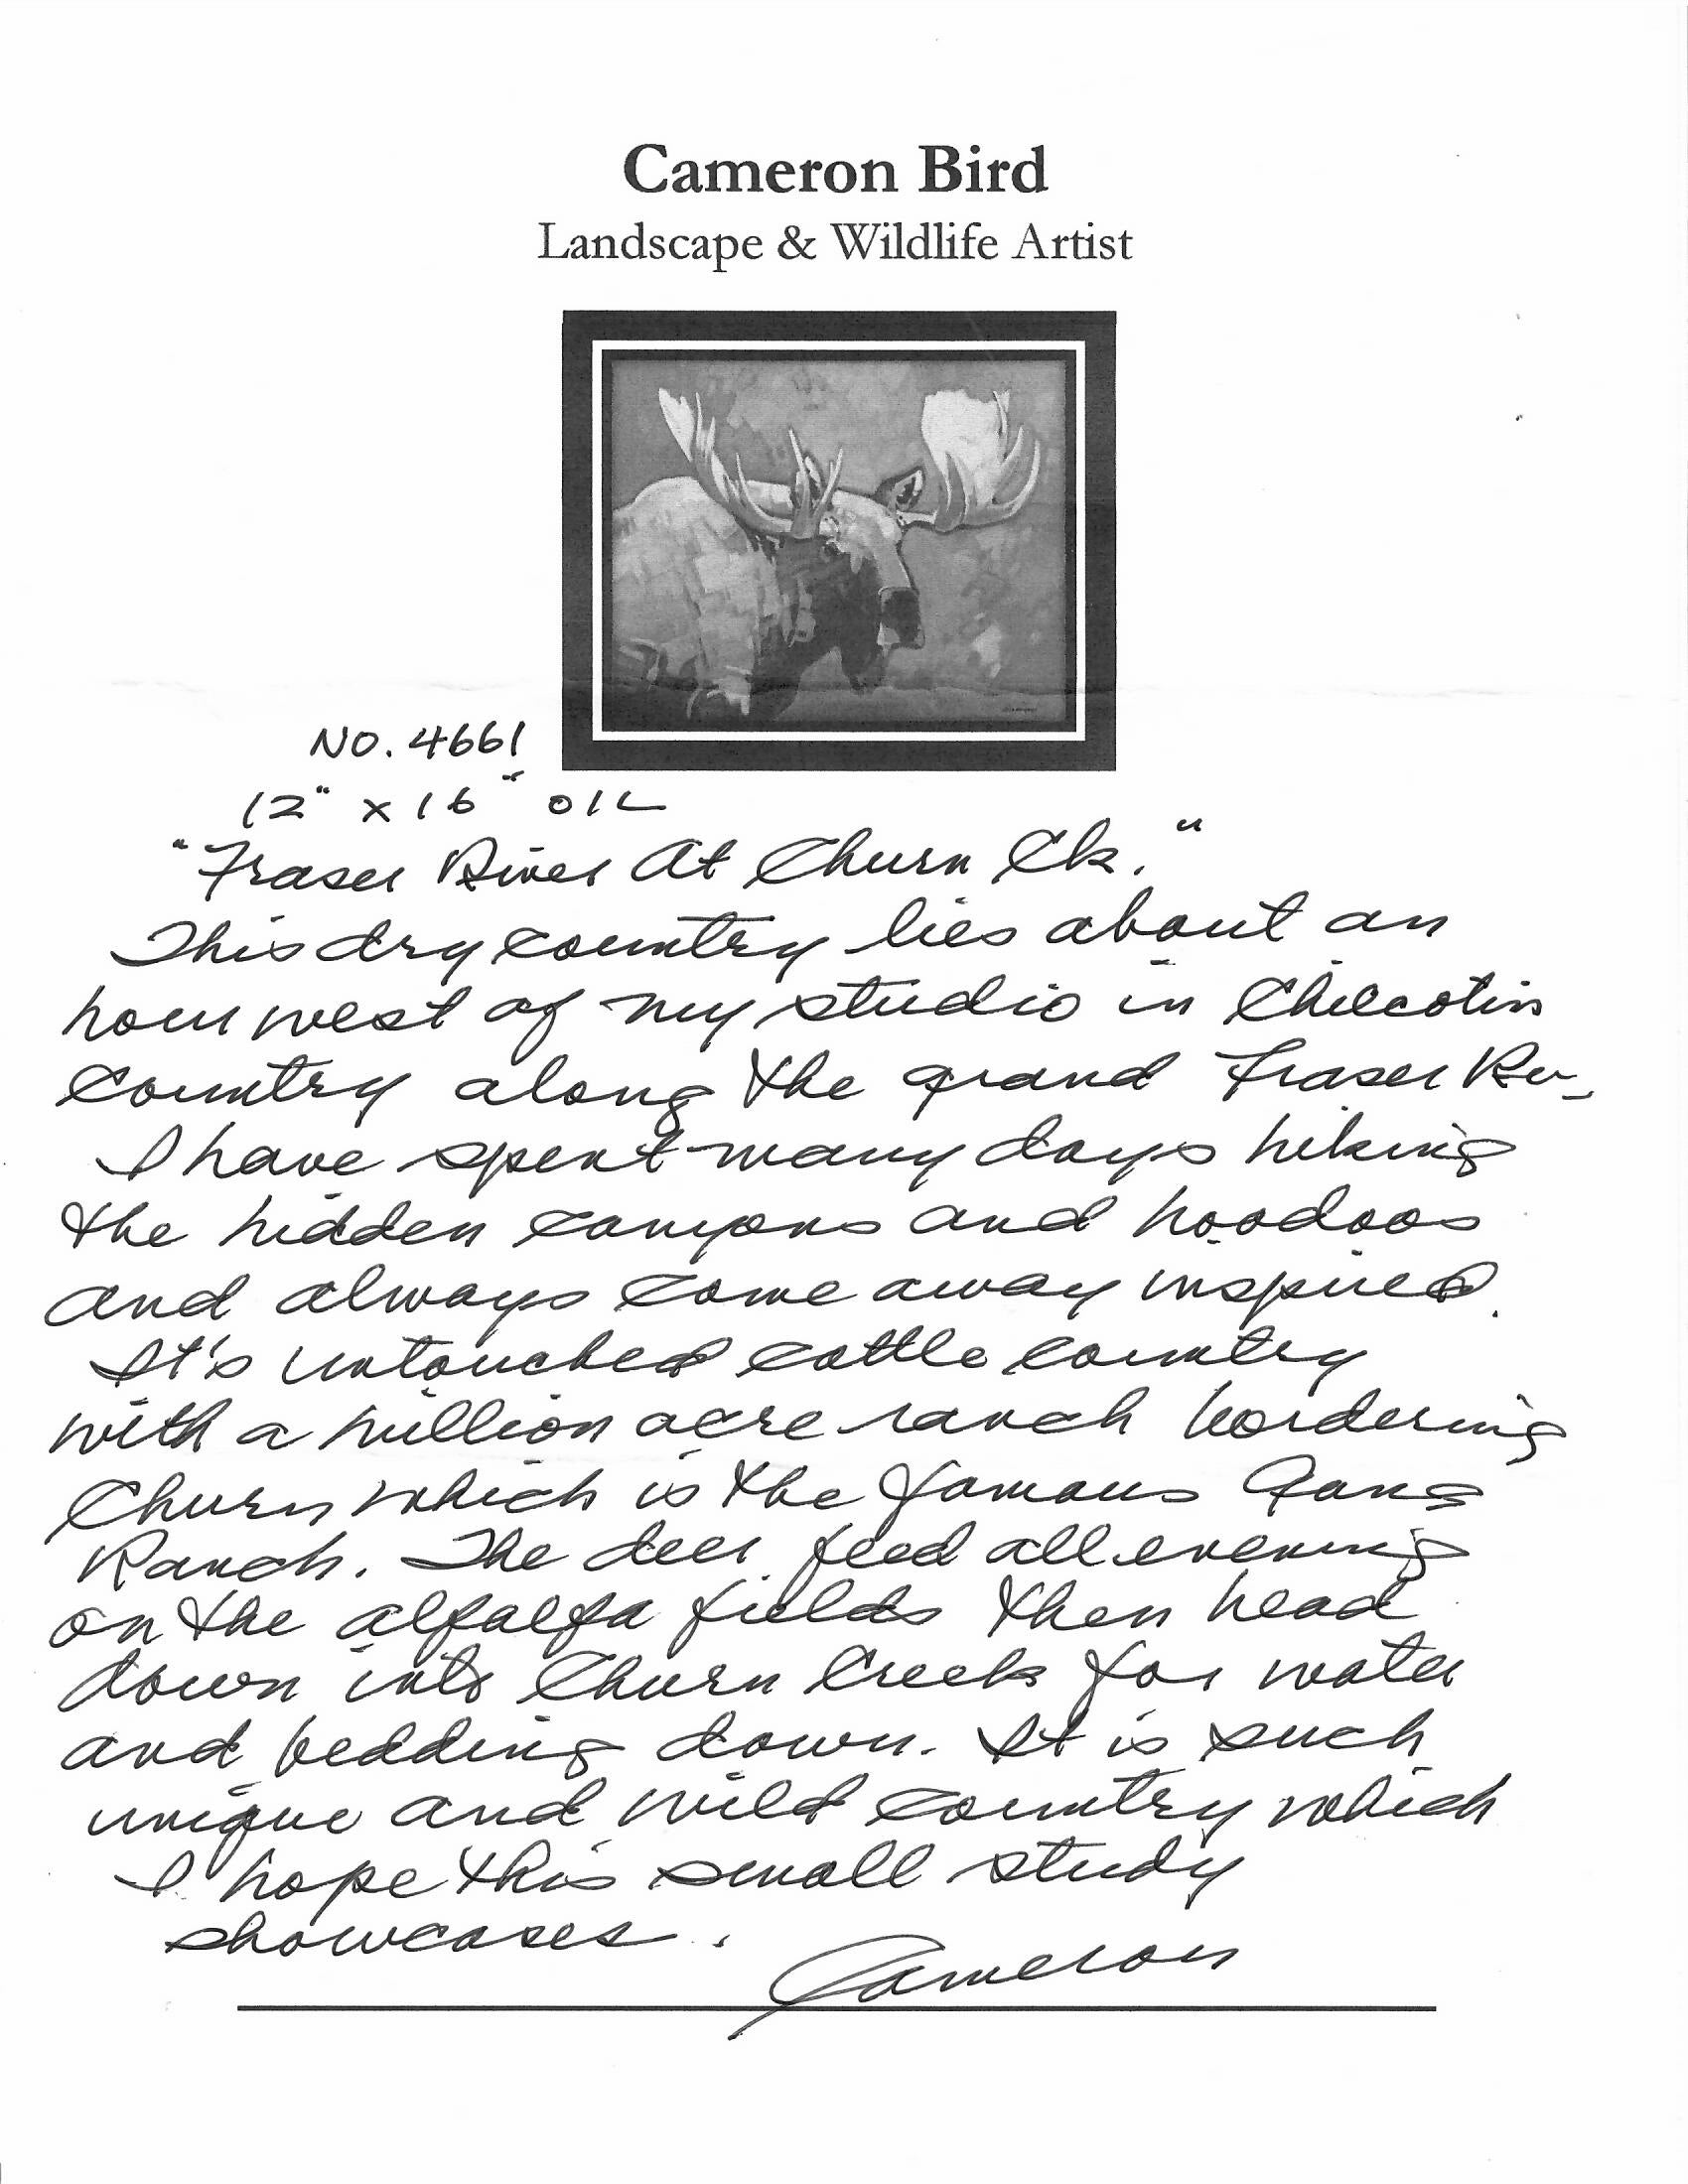 Cameron Bird
Landscape & Wildlife Artist
NO. 4661
12" x 16" OIL
"Fraser River At Churn Ck."
This dry country lies about an
hour west of my studio in Chilcotin
Country along the grand Fraser Rv.
I have spent many days hiking
the hidden canyons and hoodoos
and always come away inspired.
It's untouched cattle country
with a million acre ranch bordering
Churn which is the famous Gang
Ranch. The deer feed all evening
on the alfalfa fields then head
down into Churn Creek for water
and bedding down. It is such
unique and wild country which
I hope this small study
showcases.
Cameron